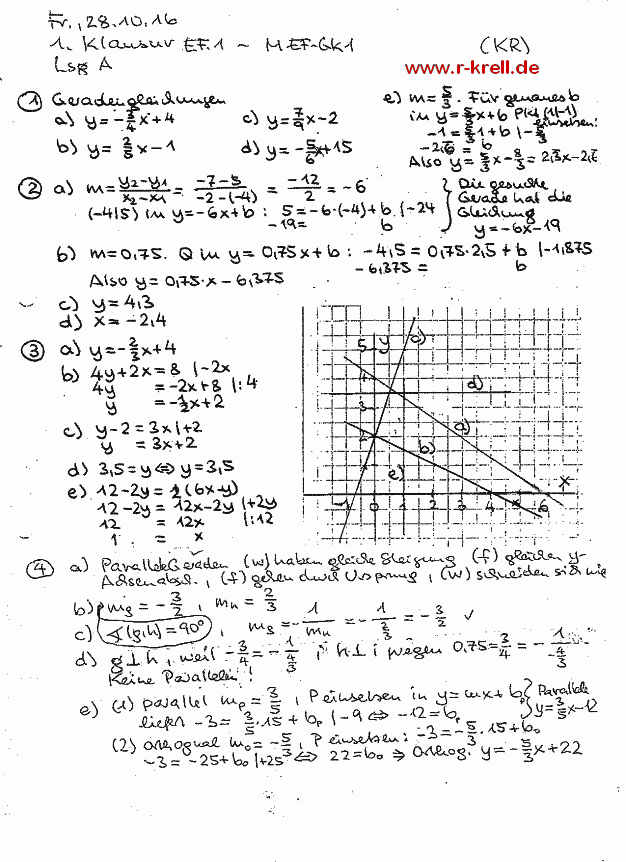 Fr., 28.10.16
1. Klausur EF.1 ~ M EF-GK1 (KR)
Lsg A www.r-krell.de
① Geradengleichungen
a) y = -3/4x + 4 c) y = 7/9x - 2
b) y = 2/5x - 1 d) y = -5/6x + 15
e) m = 5/3. Für genaues b
in y = 5/3x + b Pkt (1|-1)
einsetzen:
-1 = 5/3·1 + b | -5/3
-2,6̅ = b
Also y = 5/3x - 8/3 = 1,6̅x - 2,6̅
② a) m = y2-y1/x2-x1 = -7-5/-2-(-4) = -12/2 = -6
(-4|5) in y = -6x + b : 5 = -6·(-4) + b | -24
-19 = b
Die gesuchte
Gerade hat die
Gleichung
y = -6x - 19
b) m = 0,75. Q in y = 0,75x + b : -4,5 = 0,75·2,5 + b | -1,875
-6,375 = b
Also y = 0,75·x - 6,375
c) y = 4,3
d) x = -2,4
③ a) y = -2/3x + 4
b) 4y + 2x = 8 | -2x
4y = -2x + 8 | :4
y = -1/2x + 2
c) y - 2 = 3x | +2
y = 3x + 2
d) 3,5 = y ⇔ y = 3,5
e) 12 - 2y = 2(6x - y)
12 - 2y = 12x - 2y | +2y
12 = 12x | :12
1 = x
5 y c)
4 d)
3 a)
2 b)
e) x
-1 0 1 2 3 4 5 6
④ a) Parallele Geraden (w) haben gleiche Steigung (f) gleichen y-
Achsenabsch., (f) gehen durch Ursprung, (w) schneiden sich nie
b) mg = -3/2, mh = 2/3
c) ∢(g,h) = 90°, mg = -1/mh = -1/2/3 = -3/2 ✓
d) g ⊥ h, weil -3/4 = -1/4/3; h ⊥ i wegen 0,75 = 3/4 = -1/-4/3
Keine Parallelen!
e) (1) parallel mp = 3/5, P einsetzen in y = mx + b
liefert -3 = 3/5·15 + bp | -9 ⇔ -12 = bp
Parallele
y = 3/5x - 12
(2) orthogonal mo = -5/3, P einsetzen: -3 = -5/3·15 + bo
-3 = -25 + bo | +25 ⇔ 22 = bo ⇒ Orthog. y = -5/3x + 22